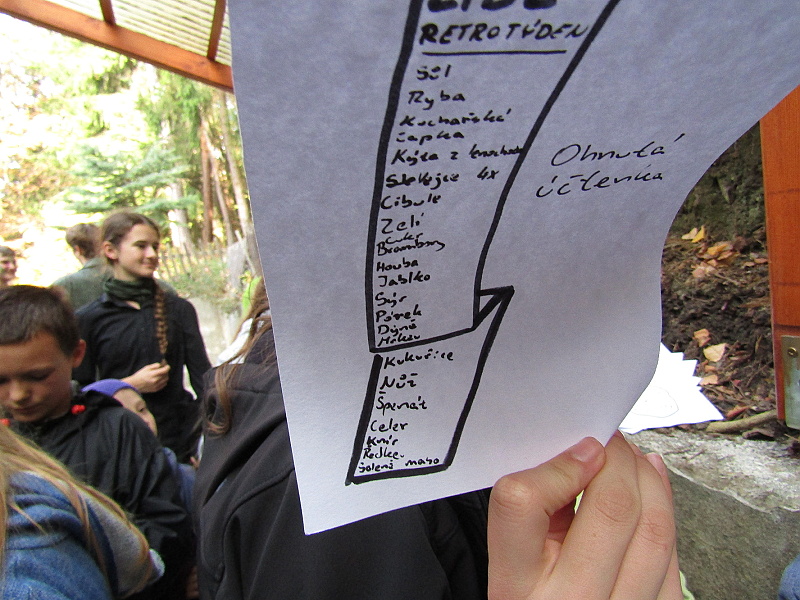 LIDL
RETROTÝDEN
Sůl
Ryba
Kuchařská
čapka
Slepejce 4x
Cibule
Zelí
Cukr
Brambory
Houba
Jablko
Sýr
Pórek
Dýně
Mrkev
Kukuřice
Nůž
Špenát
Celer
Kmín
Ředkev
Solené maso
Ohnutá
účtenka